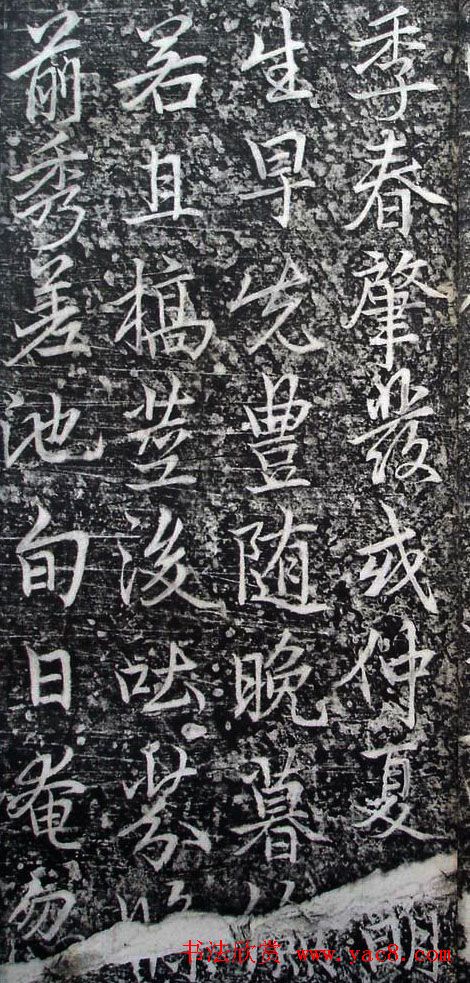 季春肇發或仲夏
生早先豊随晚暮
若且槁莖後吐芬
前秀差池旬日奄忽
书法欣赏 www.yac8.com